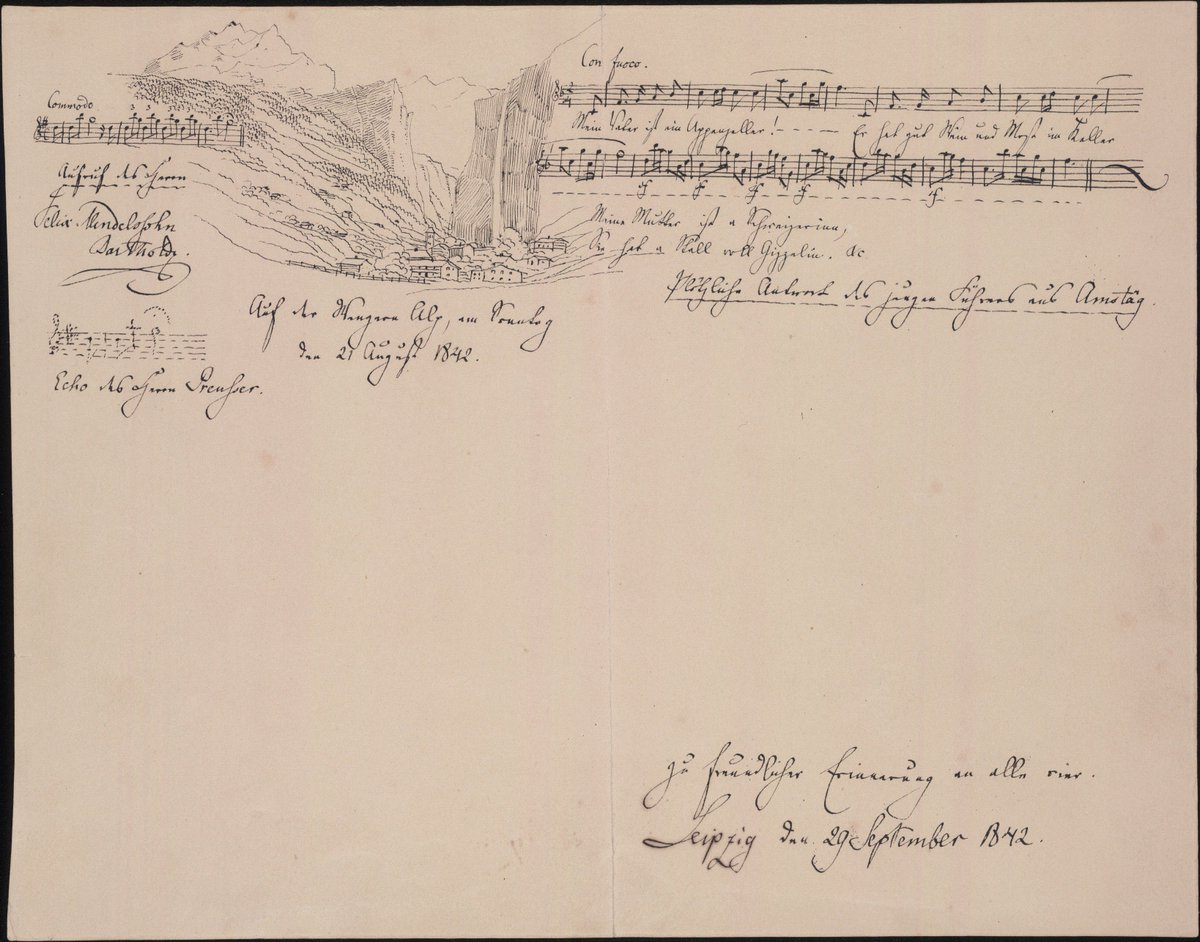 Commodo
3 3 3 3 3
Aufruf des Herrn
Felix Mendelssohn
Bartholdy.
Echo des Herrn Preusser.
Auf der Wengern Alp, am Sonntag
den 21 August 1842.
Con fuoco.
Mein Vater ist ein Appenzeller! - - - - Er het gut Wein und Most im Keller
Meine Mutter ist a Schweizerinn,
Sie het a Stall voll Gizzelin. &c
Plötzliche Antwort des jungen Führers aus Amstäg.
zu freundlicher Erinnerung an alle vier.
Leipzig den 29 September 1842.